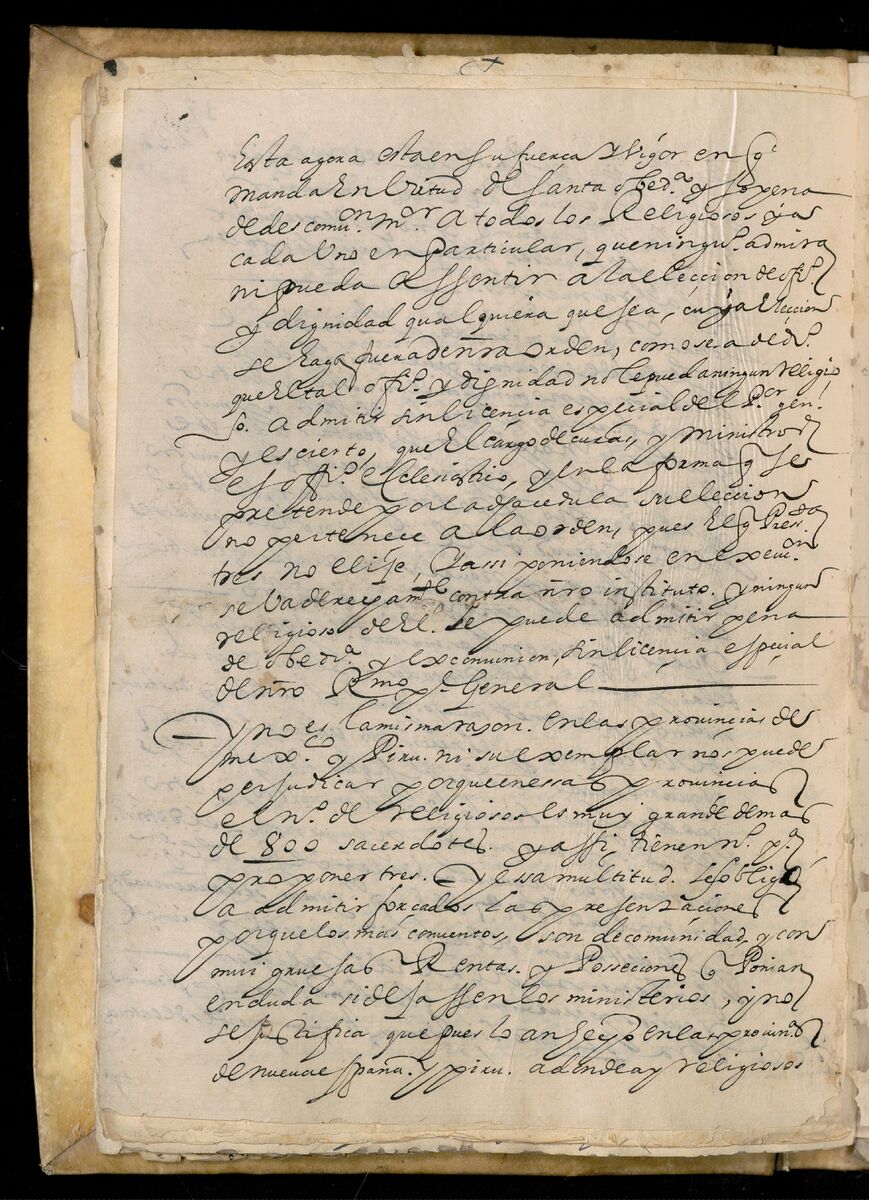 Esta agora esta en su fuerca y vigor en q̃
manda En Virtud de santa obed.ª y so pena
de descomuon. mr. A todos los Religiosos y a
cada Uno en particular, que ningu.º admira
ni pueda Assentir a la eleccion de ofi.º
y dignidad qualquiera que sea, cuya Eleccion
se haga fuera de nra Orden, como se a de
que El tal ofi.º y dignidad no le pueda ningun religio
so. admitir sin licencia especial del P.or gen.l
y es cierto, que El cargo de curas, y ministros
es offi.º eclesiastico, y en la forma q̃ se
pretende por la dicha cedula su eleccion
no pertenece a la orden, pues El q̃ Presenta
tres no elije, Y assi poniendose en execuon.
se Va derechamte contra nro instituto. y ningun
religioso de El. le puede admitir pena
de obed.ª y excomunion, sin licencia espicial
de nro Rmo p.e General
y no es la misma rason. en las provincias de
mex.co y Piru. ni su exemplar nos puede
perjudicar porque en essas provincias
el n.º de religiosos es muy grande de mas
de 800 sacerdotes. y assi tienen n.º p.ª
proponer tres. y essa multitud. les obligo
a admitir forcados las presentaciones
porque los mas conventos, son de comunidad, y con
mui gruesas Rentas. y Posseciones q̃ Ponian
en duda si dejassen los ministerios, y no
se justifica que pues lo an hecho en las provin.as
de nueva españa. y piru. adonde ay religiosos